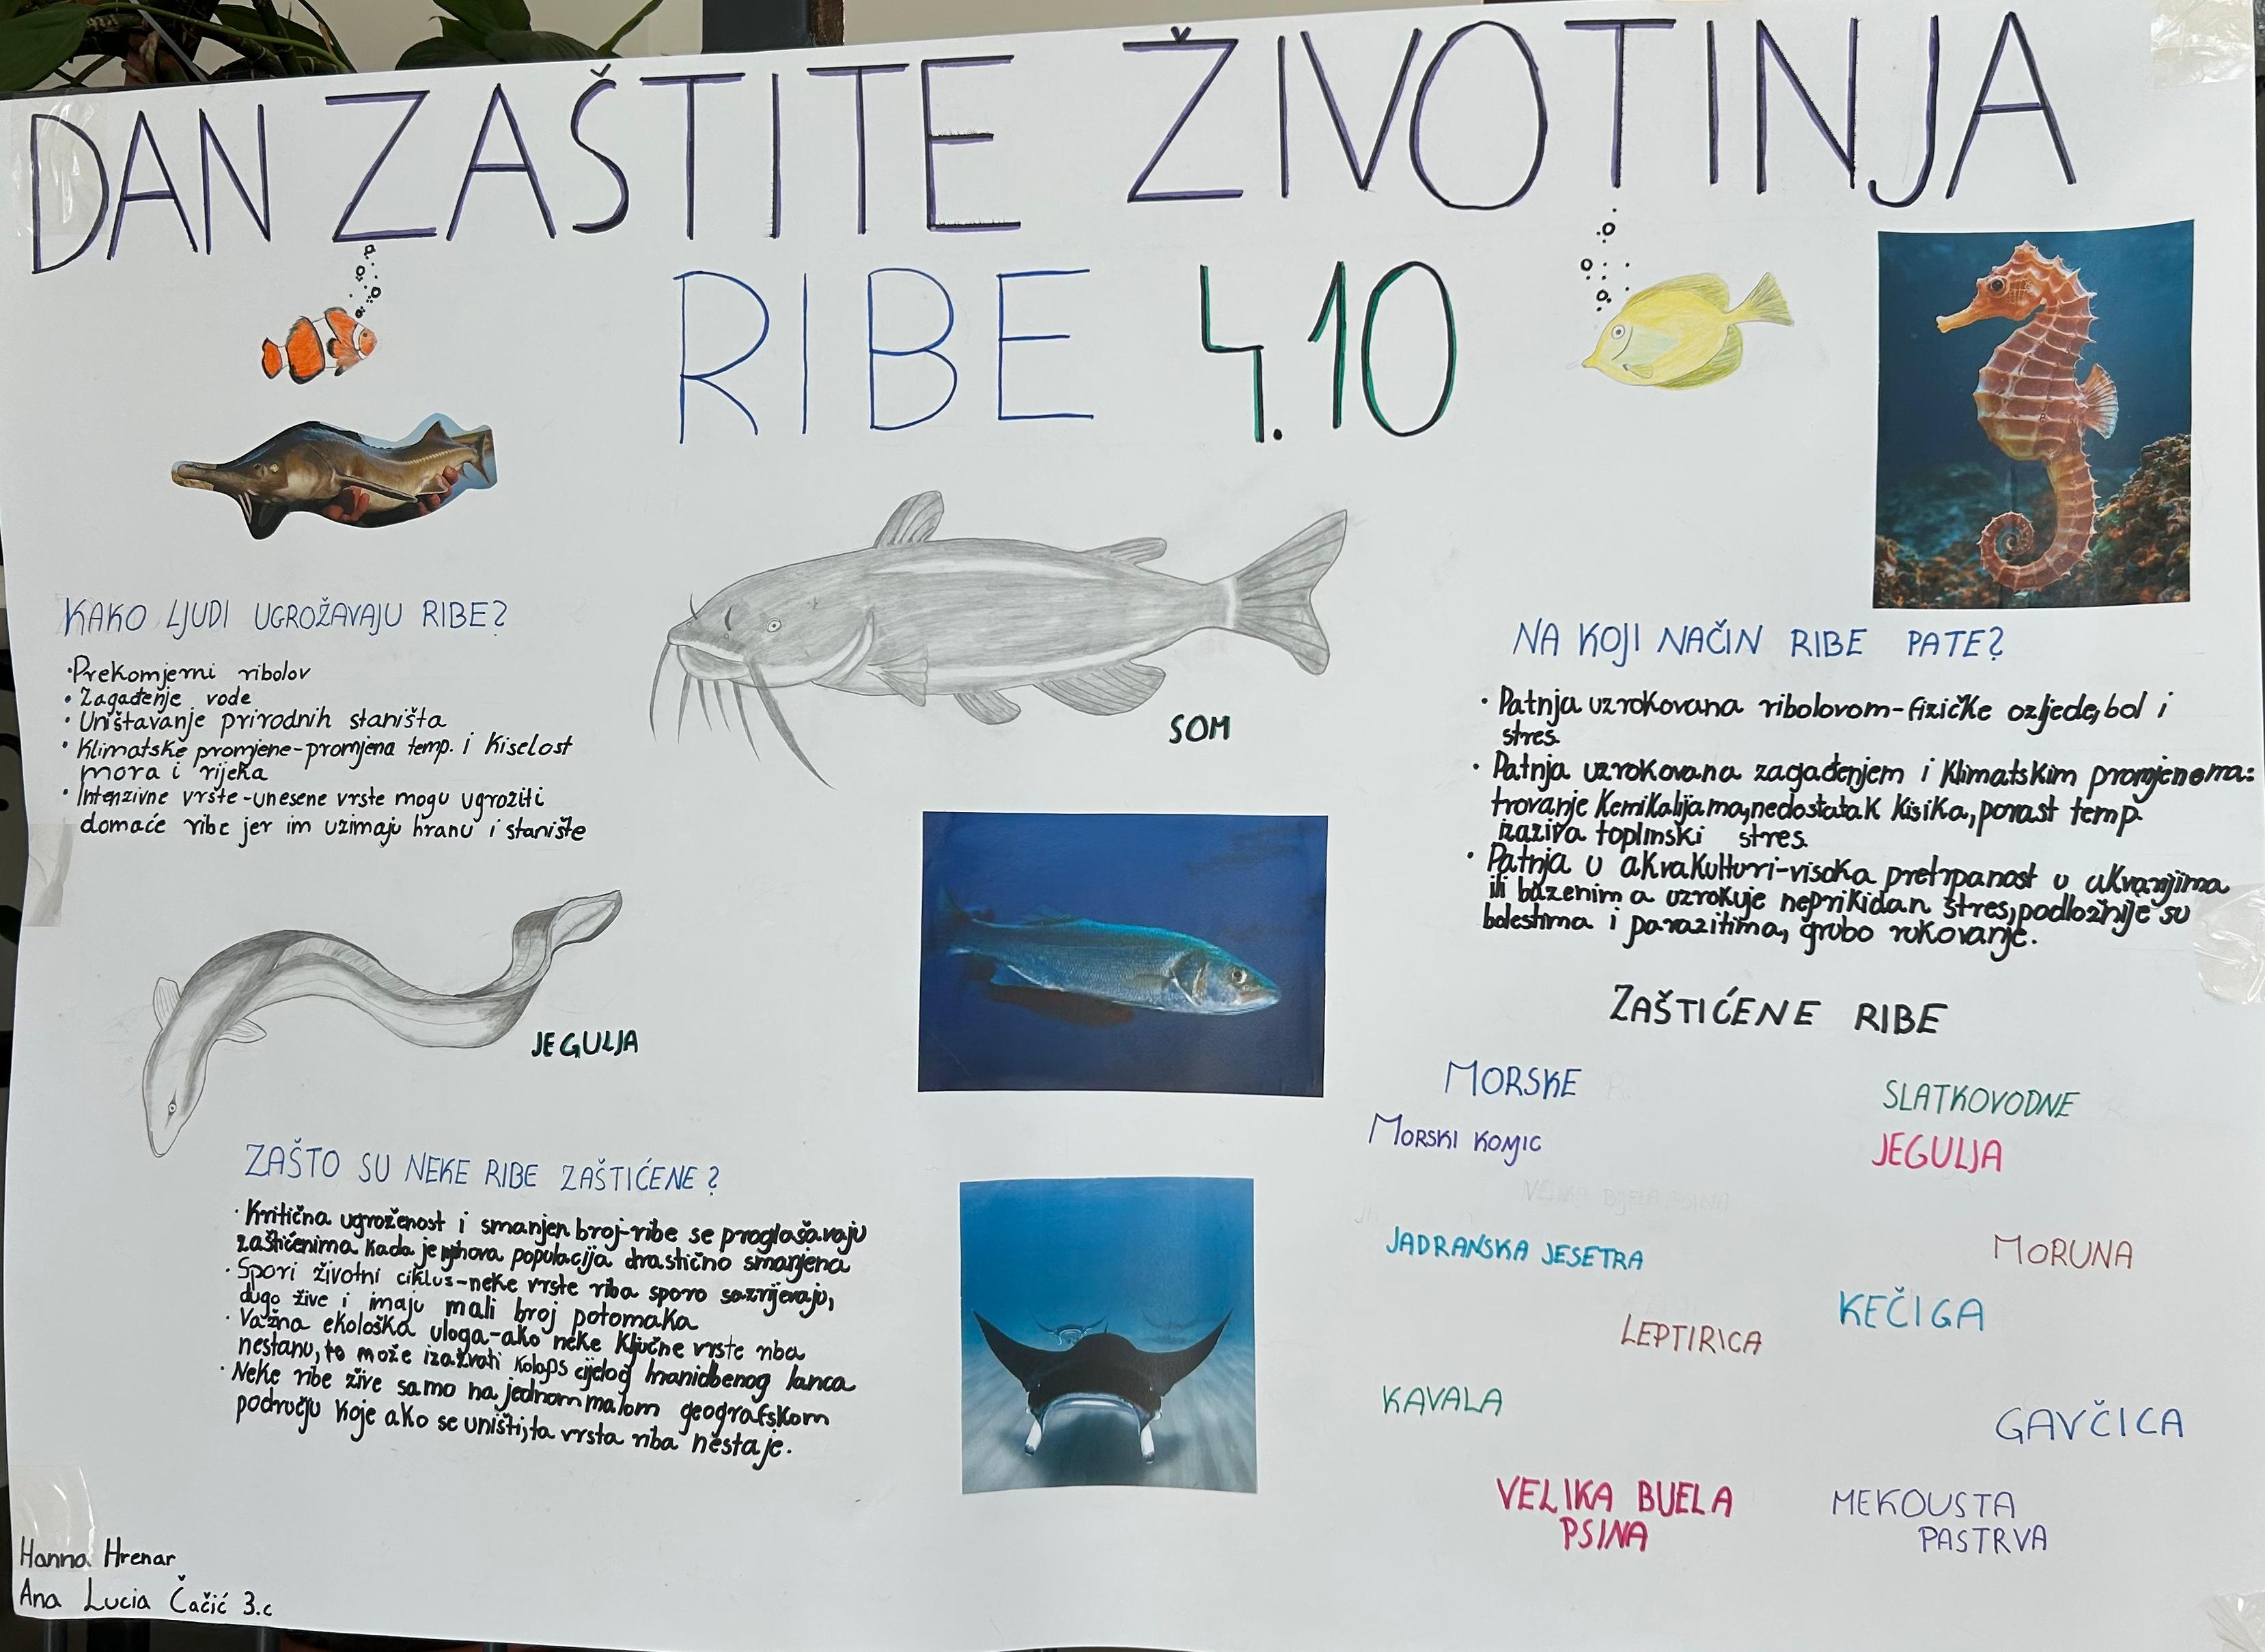 DAN ZAŠTITE ŽIVOTINJA
RIBE 4.10
KAKO LJUDI UGROŽAVAJU RIBE?
•Prekomjerni ribolov
• Zagađenje vode
• Uništavanje prirodnih staništa
• Klimatske promjene-promjena temp. i kiselost
mora i rijeka
• Intenzivne vrste-unesene vrste mogu ugroziti
domaće ribe jer im uzimaju hranu i stanište
SOM
JEGULJA
ZAŠTO SU NEKE RIBE ZAŠTIĆENE?
• Kritična ugroženost i smanjen broj-ribe se proglašavaju
zaštićenima kada je njihova populacija drastično smanjena
• Spori životni ciklus-neke vrste riba sporo sazrijevaju,
dugo žive i imaju mali broj potomaka
• Važna ekološka uloga-ako neke ključne vrste riba
nestanu, to može izazvati kolaps cijelog hranidbenog lanca
• Neke ribe žive samo na jednom malom geografskom
području koje ako se uništi, ta vrsta riba nestaje.
Hanna Hrenar
Ana Lucia Čačić 3.c
NA KOJI NAČIN RIBE PATE?
• Patnja uzrokovana ribolovom-fizičke ozljede, bol i
stres
• Patnja uzrokovana zagađenjem i klimatskim promjenama:
trovanje kemikalijama, nedostatak kisika, porast temp.
izaziva toplinski stres.
• Patnja u akvakulturi-visoka pretrpanost u akvarijima
ili bazenima uzrokuje neprikidan stres, podložnije su
bolestima i parazitima, grubo rukovanje.
ZAŠTIĆENE RIBE
MORSKE
SLATKOVODNE
MORSKI KONJIC
JEGULJA
VELIKA BIJELA PSINA
JADRANSKA JESETRA
MORUNA
KEČIGA
LEPTIRICA
KAVALA
GAVČICA
VELIKA BIJELA
PSINA
MEKOUSTA
PASTRVA